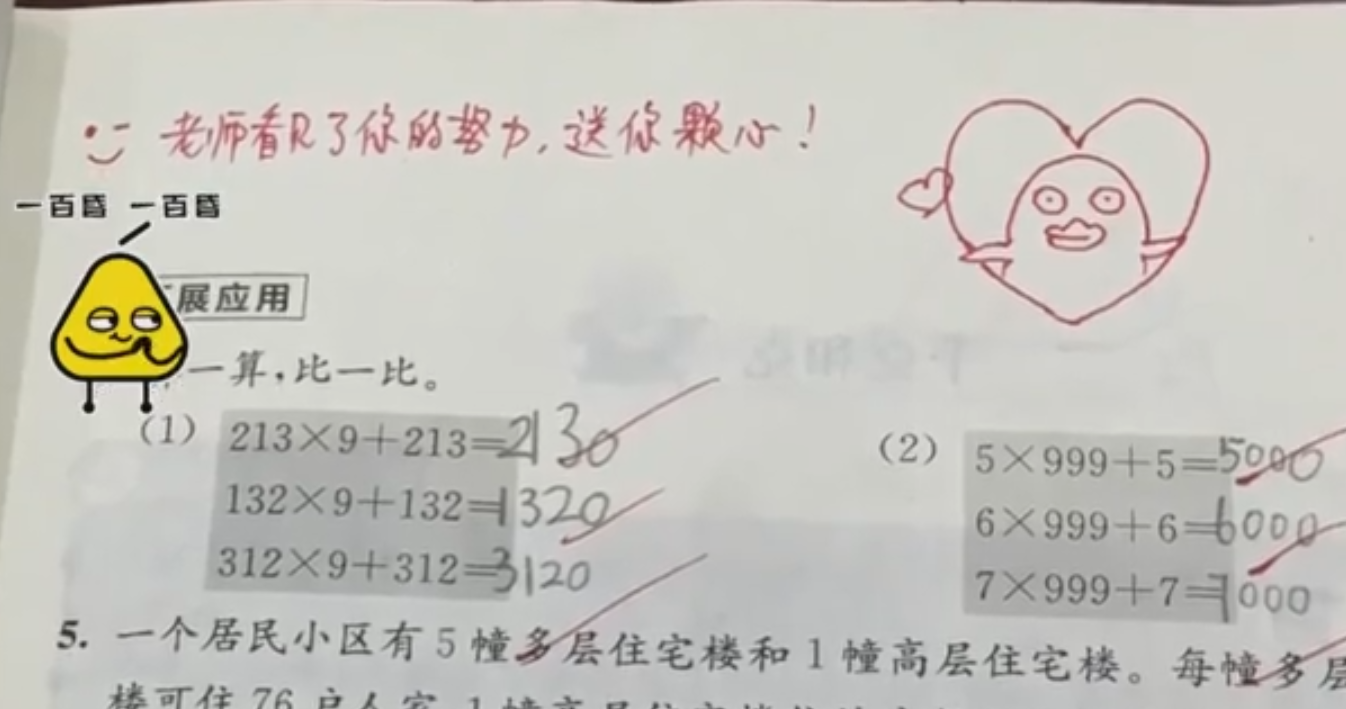 老师看见了你的努力，送你颗心！
一百昏 一百昏
展应用
一算，比一比。
(1) 213×9+213=2130
132×9+132=1320
312×9+312=3120
(2) 5×999+5=5000
6×999+6=6000
7×999+7=7000
5. 一个居民小区有5幢多层住宅楼和1幢高层住宅楼。每幢多层
楼可住76户人家